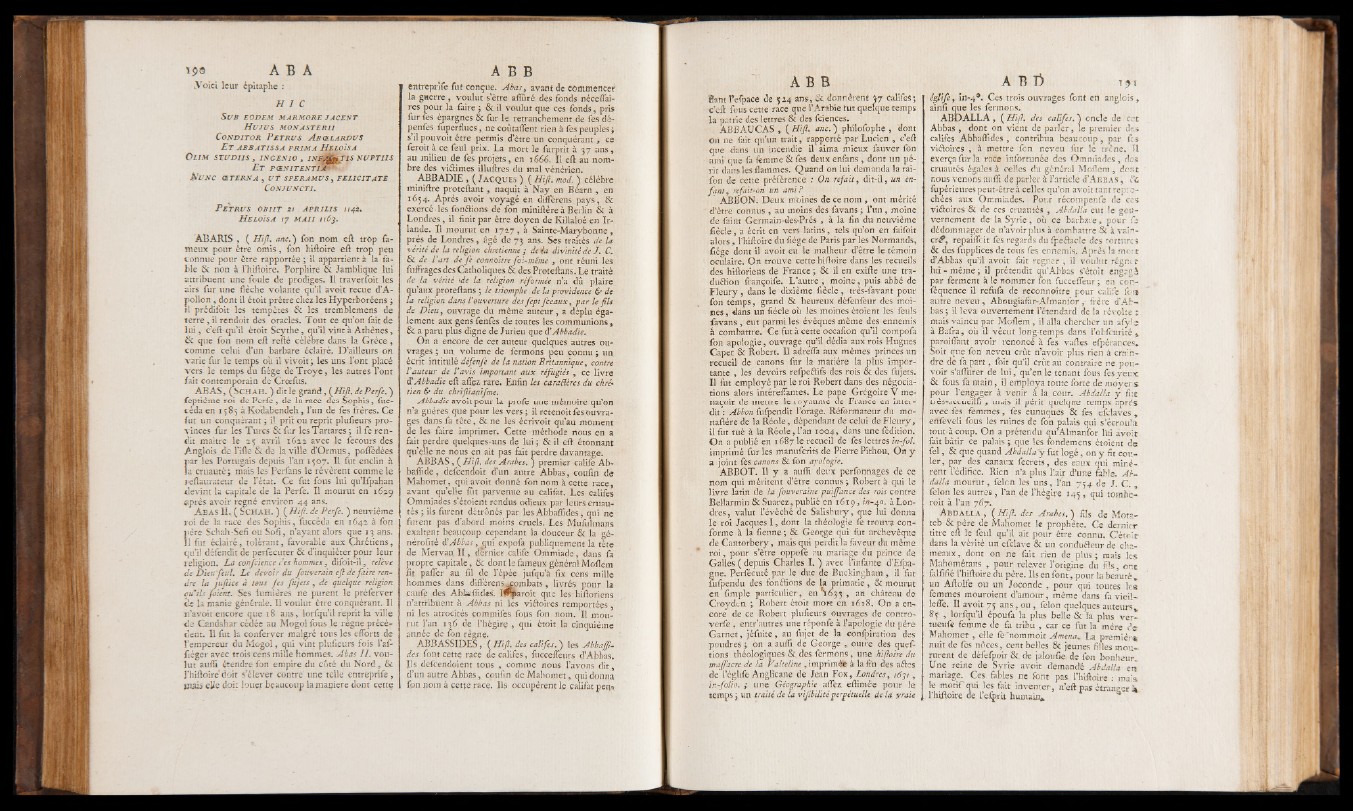 190 A B A
Voici leur épitaphe :
H I C
SUB EODEM MARMORE JACENT
HUJUS MONASTERII
CONDITOR PETRUS ABÆLARDUS
ET ABBATISSA PRIMA HELOISA
OLIM STUDIIS, INGENIO, NUPTIIS
ET PŒNITENTIA
NUNC ÆTERNA, UT SPERAMUS, FELICITATE
CONJUNCTI.
PETRUS OBIIT 21 APRILIS 1142.
HELOISA 17 MAII 1163.
ABARIS, ( Hist. anc. ) son nom est trop fa-
meux pour être omis, son histoire est trop peu
connue pour être rapportée ; il appartient à la fa-
ble & non à l'histoire. Porphire & Jamblique lui
attribuent une foule de prodiges. Il traversoit les
airs sur une flèche volante qu'il avoit reçue d'A-
pollon, dont il étoit prêtre chez les Hyperboréens ;
il prédisoit les tempêtes & les tremblemens de
terre, il rendoit des oracles. Tout ce qu'on sait de
lui, c'est qu'il étoit Scythe, qu'il vint à Athènes,
& que son nom est resté célèbre dans la Grèce,
comme celui d'un barbare éclairé. D'ailleurs on
varie sur le temps où il vivoit ; les uns l'ont placé
vers le temps du siège de Troye, les autres l'ont
fait contemporain de Crœsus.
ABAS, (SCHAH.) dit le grand, ( Hist. de Perse. )
septième roi de Perse, de la race des Sophis, suc-
céda en 1585 à Kodabendeh, l'un de ses frères. Ce
fut un conquérant ; il prit ou reprit plusieurs pro-
vinces sur les Turcs & sur les Tartares ; il se ren-
dit maître le 25 avril 1622 avec le secours des
Anglois de l'isle & de la ville d'Ormus, possédées
par les Portugais depuis l'an 1507. Il fut enclin à
la cruauté ; mais les Persans le révèrent comme le
restaurateur de l'état. Ce fut sous lui qu'Ispahan
devint la capitale de la Perse. Il mourut en 1629
après avoir regné environ 44 ans.
ABAS II. ( SCHAH. ) ( Hist. de Perse. ) neuvième
roi de la race des Sophis, succéda en 1642 à son
père Schah-Sefi ou Sofi, n'ayant alors que 13 ans.
Il fut éclairé, tolérant, favorable aux Chrétiens,
qu'il défendit de persécuter & d'inquiéter pour leur
religion. La conscience des hommes, disoit-il, relève
de Dieu seul. Le devoir du souverain est de faire ren-
dre la justice à tous ses sujets, de quelque religion
qu'ils soient. Ses lumières ne purent le préserver
de la manie générale. Il voulut être conquérant. Il
n'avoit encore que 18 ans, lorsqu'il reprit la ville
de Candahar cédée au Mogol sous le règne précé-
dent. Il sut la conserver malgré tous les efforts de
l'empereur du Mogol, qui vint plusieurs fois l'as-
siéger avec trois cens mille hommes. Abas II. vou-
lut aussi étendre son empire du côté du Nord, &
l'histoire doit s'élever contre une telle entreprise,
mais elle doit louer beaucoup la manière dont cette
A B B
entreprise fut conçue. Abas, avant de commencer
la guerre, voulut s'être assuré des fonds nécessai-
res pour la faire ; & il voulut que ces fonds, pris
sur ses épargnes & sur le retranchement de ses dé-
penses superflues, ne coûtassent rien à ses peuples ;
s'il pouvoit être permis d'être un conquérant, ce
seroit à ce seul prix. La mort le surprit à 37 ans,
au milieu de ses projets, en 1666. Il est au nom-
bre des victimes illustres du mal vénérien.
ABBADIE, ( JACQUES ) ( Hist. mod. ) célèbre
ministre protestant, naquit à Nay en Béarn, en
1654. Après avoir voyagé en différens pays, &
exercé les fonctions de son ministère à Berlin & à
Londres, il finit par être doyen de Killaloë en Ir-
lande. Il mourut en 1727, à Sainte-Marybonne,
près de Londres, âgé de 73 ans. Ses traités de la
vérité de la religion chrétienne ; de la divinité de J. C.
& de l'art de se connoître soi-même, ont réuni les
suffrages des Catholiques & des Protestans. Le traité
de la vérité de la religion réformée n'a dû plaire
qu'aux protestans ; le triomphe de la providence & de
la religion dans l'ouverture des sept sceaux, par le fils
de Dieu, ouvrage du même auteur, a déplu éga-
lement aux gens sensés de toutes les communions,
& a paru plus digne de Jurieu que d'Abbadie.
On a encore de cet auteur quelques autres ou-
vrages ; un volume de sermons peu connu ; un
écrit intitulé défense de la nation Britannique, contre
l'auteur de l'avis important aux réfugiés, ce livre
d'Abbadie est assez rare. Enfin les caractères du chré-
tien & du christianisme.
Abbadie avoit pour la prose une mémoire qu'on
n'a guères que pour les vers ; il retenoit ses ouvra-
ges dans sa tête, & ne les écrivoit qu'au moment
de les faire imprimer. Cette méthode nous en a
fait perdre quelques-uns de lui ; & il est étonnant
qu'elle ne nous en ait pas fait perdre davantage.
ABBAS, ( Hist. des Arabes. ) premier calife Ab-
basside, descendoit d'un autre Abbas, cousin de
Mahomet, qui avoit donné son nom à cette race,
avant qu'elle fût parvenue au califat. Les califes
Ommiades s'étoient rendus odieux par leurs cruau-
tés ; ils furent détrônés par les Abbassides, qui ne
furent pas d'abord moins cruels. Les Musulmans
exaltent beaucoup cependant la douceur & la gé-
nérosité d'Abbas, qui exposa publiquement la tête
de Mervan II, dernier calife Ommiade, dans sa
propre capitale, & dont le fameux général Moslem
fit passer au fil de l'épée jusqu'à six cens mille
hommes dans différens combats, livrés pour la
cause des Abbassides. Il paroît que les historiens
n'attribuent à Abbas ni les victoires remportées,
ni les atrocités commises sous son nom. Il mou-
rut l'an 136 de l'hégire, qui étoit la cinquième
année de son règne.
ABBASSIDES, ( Hist. des califes. ) les Abbassi-
des sont cette race de califes, successeurs d'Abbas.
Ils descendoient tous, comme nous l'avons dit,
d'un autre Abbas, cousin de Mahomet, qui donna
son nom à cette race. Ils occupèrent le califat pen-
A B B
dant l'espace de 524 ans, & donnèrent 37 califes ;
c'est sous cette race que l'Arabie fut quelque temps
la patrie des lettres & des sciences.
ABBAUCAS, ( Hist. anc. ) philosophe, dont
on ne sait qu'un trait, rapporté par Lucien, c'est
que dans un incendie il aima mieux sauver son
ami que sa femme & ses deux enfans, dont un pé-
rit dans les flammes. Quand on lui demanda la rai-
son de cette préférence : On refait, dit-il, un en-
fant, refait-on un ami ?
ABBON. Deux moines de ce nom, ont mérité
d'être connus, au moins des savans ; l'un, moine
de saint Germain-des-Prés, à la fin du neuvième
siècle, a écrit en vers latins, tels qu'on en faisoit
alors, l'histoire du siége de Paris par les Normands,
siége dont il avoit eu le malheur d'être le témoin
oculaire. On trouve cette histoire dans les recueils
des historiens de France ; & il en existe une tra-
duction françoise. L'autre, moine, puis abbé de
Fleury, dans le dixième siècle, très-savant pour
son temps, grand & heureux défenseur des moi-
nes, dans un siècle où les moines étoient les seuls
savans, eut parmi les évêques même des ennemis
à combattre. Ce fut à cette occasion qu'il composa
son apologie, ouvrage qu'il dédia aux rois Hugues
Capet & Robert. Il adressa aux mêmes princes un
recueil de canons sur la matière la plus impor-
tante, les devoirs respectifs des rois & des sujets.
Il fut employé par le roi Robert dans des négocia-
tions alors intéressantes. Le pape Grégoire V me-
naçoit de mettre le royaume de France en inter-
dit : Abbon suspendit l'orage. Réformateur du mo-
nastère de la Réole, dépendant de celui de Fleury,
il fut tué à la Réole, l'an 1004, dans une sédition.
On a publié en 1687 le recueil de ses lettres in-fol.
imprimé sur les manuscrits de Pierre Pithou. On y
a joint ses canons & son apologie.
ABBOT. Il y a aussi deux personnages de ce
nom qui méritent d'être connus ; Robert à qui le
livre latin de la souveraine puissance des rois contre
Bellarmin & Suarez, publié en 1619, in-4o. à Lon-
dres, valut l'évêché de Salisbury, que lui donna
le roi Jacques I, dont la théologie se trouva con-
forme à la sienne ; & George qui fut archevêque
de Cantorbery, mais qui perdit la faveur du même
roi, pour s'être opposé au mariage du prince de
Galles ( depuis Charles I. ) avec l'infante d'Espa-
gne. Persécuté par le duc de Buckingham, il fut
suspendu des fonctions de la primatie, & mourut
en simple particulier, en 1633, au château de
Croydon ; Robert étoit mort en 1618. On a en-
core de ce Robert plusieurs ouvrages de contro-
verse, entr'autres une réponse à l'apologie du père
Garnet, jésuite, au sujet de la conspiration des
poudres ; on a aussi de George, outre des ques-
tions théologiques & des sermons, une histoire du
massacre de la Valteline, imprimée à la fin des actes
de l'église Anglicane de Jean Fox, Londres, 1631,
in-folio. ; une Géographie assez estimée pour le
temps ; un traité de la visibilité perpétuelle de la vraie
A B D 191
église, in-4°. Ces trois ouvrages sont en anglois,
ainsi que les sermons.
ABDALLA, ( Hist. des califes. ) oncle de cet
Abbas, dont on vient de parler, le premier des
califes Abbassides, contribua beaucoup, par ses
victoires, à mettre son neveu sur le trône. Il
exerça sur la race infortunée des Omniades, des
cruautés égales à celles du général Moslem, dont
nous venons aussi de parler à l'article d'ABBAS, &
supérieures peut-être à celles qu'on avoit tant repro-
chées aux Ommiades. Pour récompense de ces
victoires & de ces cruautés, Abdalla eut le gou-
vernement de la Syrie, où ce barbare, pour se
dédommager de n'avoir plus à combattre & à vain-
cre, repaissoit ses regards du spectacle des tortures
& des supplices de tous ses ennemis. Après la mort
d'Abbas qu'il avoit fait regner, il voulut régner
lui-même ; il prétendit qu'Abbas s'étoit engagé
par serment à le nommer son successeur ; en con-
séquence il refusa de reconnoître pour calife son
autre neveu, Abougiafar-Almansor, frère d'Ab-
bas ; il leva ouvertement l'étendard de la révolte :
mais vaincu par Moslem, il alla chercher un asyle
à Basra, où il vécut long-temps dans l'obscurité,
paroissant avoir renoncé à ses vastes espérances.
Soit que son neveu crût n'avoir plus rien à crain-
dre de sa part, soit qu'il crût au contraire ne pou-
voir s'assurer de lui, qu'en le tenant sous ses yeux
& sous sa main, il employa toute sorte de moyens
pour l'engager à venir à la cour. Abdalla y fut
très-accueilli, mais il périt quelque temps après
avec ses femmes, ses eunuques & ses esclaves,
enseveli sous les ruines de son palais qui s'écroula
tout-à-coup. On a prétendu qu'Almansor lui avoit
fait bâtir ce palais ; que les fondemens étoient de
sel, & que quand Abdalla y fut logé, on y fit cou-
ler, par des canaux secrets, des eaux qui minè-
rent l'édifice. Rien n'a plus l'air d'une fable. Ab-
dalla mourut, selon les uns, l'an 754 de J. C.,
selon les autres, l'an de l'hégire 145, qui tombe-
roit à l'an 767.
ABDALLA, ( Hist. des Arabes. ) fils de Mota-
leb & père de Mahomet le prophète. Ce dernier
titre est le seul qu'il ait pour être connu. C'étoit
dans la vérité un esclave & un conducteur de cha-
meaux, dont on ne sait rien de plus ; mais les
Mahométans, pour relever l'origine du fils, ont
falsifié l'histoire du père. Ils en font, pour la beauté,
un Astolfe ou un Joconde, pour qui toutes les
femmes mouroient d'amour, même dans sa vieil-
lesse. Il avoit 75 ans, ou, selon quelques auteurs,
85, lorsqu'il épousa la plus belle & la plus ver-
tueuse femme de sa tribu, car ce fut la mère de
Mahomet, elle se nommoit Amena. La première
nuit de ses nôces, cent belles & jeunes filles mou-
rurent de désespoir & de jalousie de son bonheur.
Une reine de Syrie avoit démandé Abdalla en
mariage. Ces fables ne sont pas l'histoire : mais
le motif qui les fait inventer, n'est pas étranger à
l'histoire de l'esprit humain.